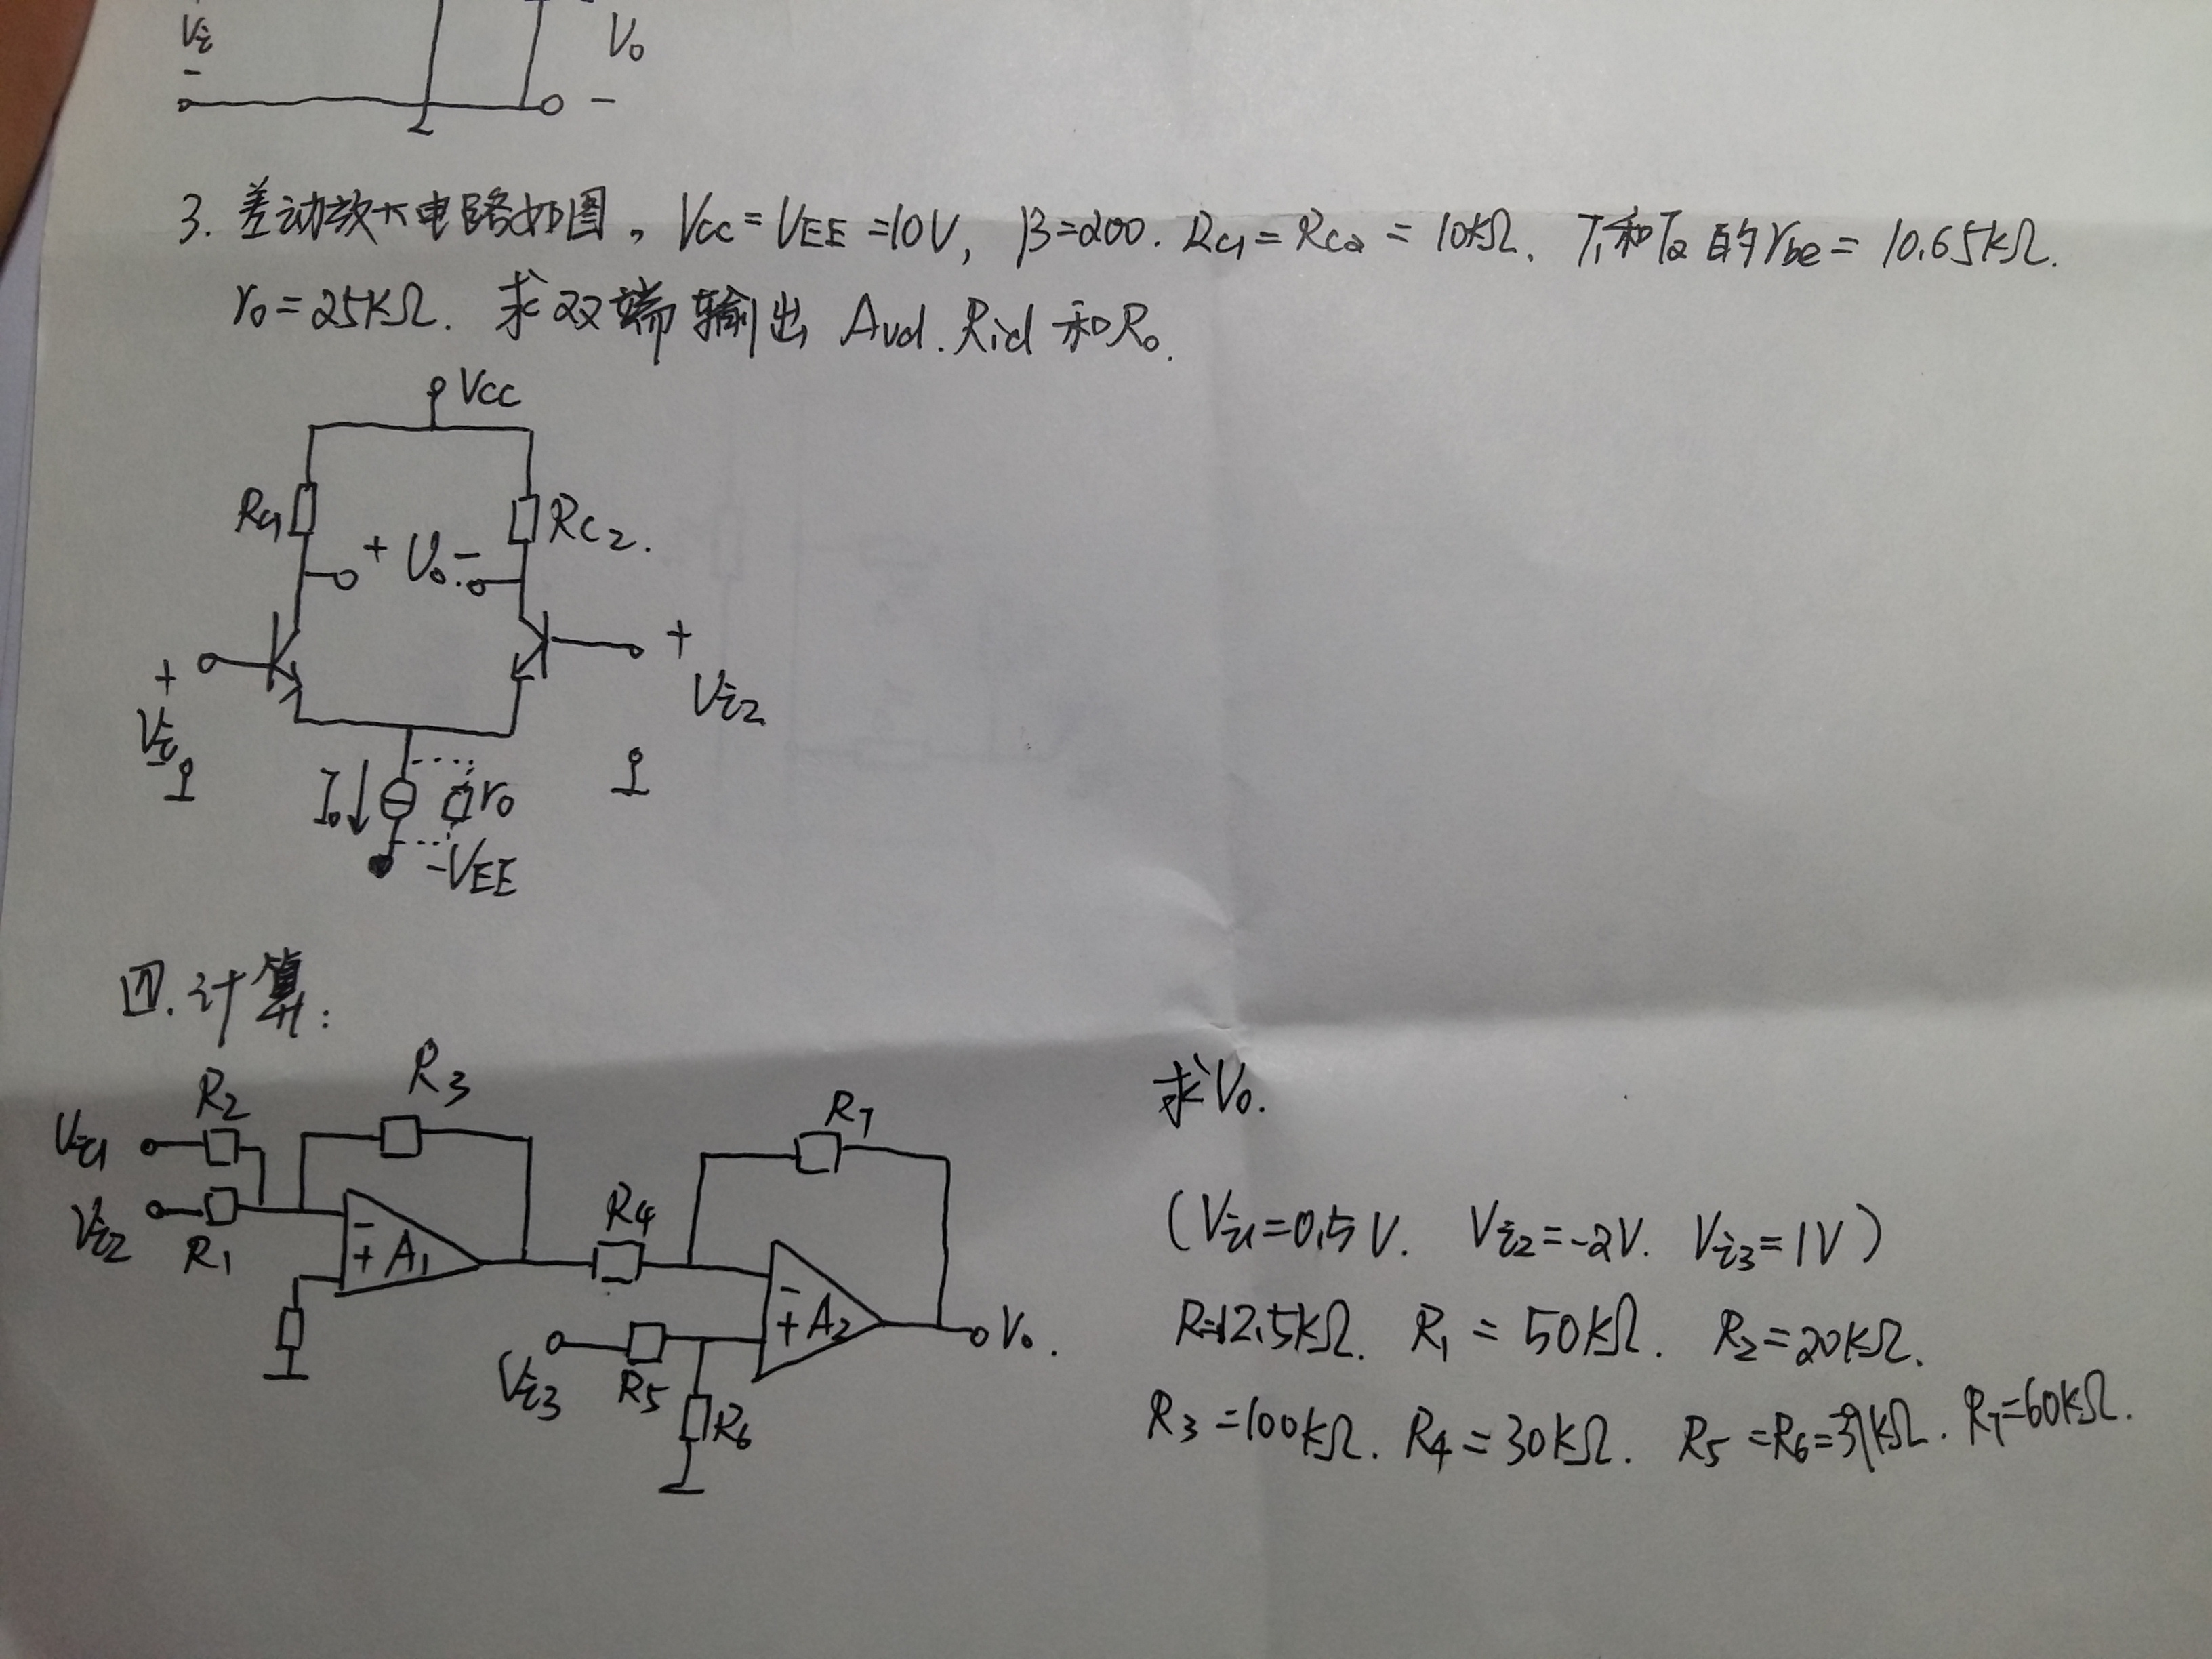 Vi
-
Vo
-
3. 差动放大电路如图。Vcc = VEE =10V, β=200. Rc1 = Rc2 = 10kΩ. T1和T2的rbe = 10.65kΩ.
ro = 25kΩ. 求双端输出 Avd. Rid 和Ro.
Vcc
Rc1
Rc2.
+ Vo. -
+
Vi1
+
Vi2
Io
ro
-VEE
四.计算:
R3
R2
Vi1
Vi2
R1
- + A1
R4
R7
- + A2
Vo.
Vi3
R5
R6
求Vo.
(Vi1=0.5V. Vi2=-2V. Vi3=1V)
R=12.5kΩ. R1 = 50kΩ. R2=20kΩ.
R3 =100kΩ. R4 = 30kΩ. R5 =R6=39kΩ. R7=60kΩ.